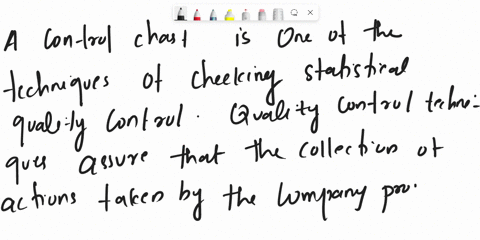 A control chart is one of the
techniques of checking statistical
quality control. Quality control techni-
ques assure that the collection of
actions taken by the company pro.